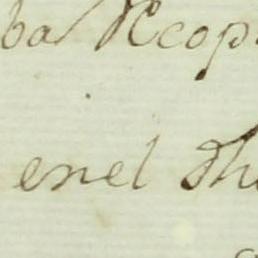 ba Recop
enel Th